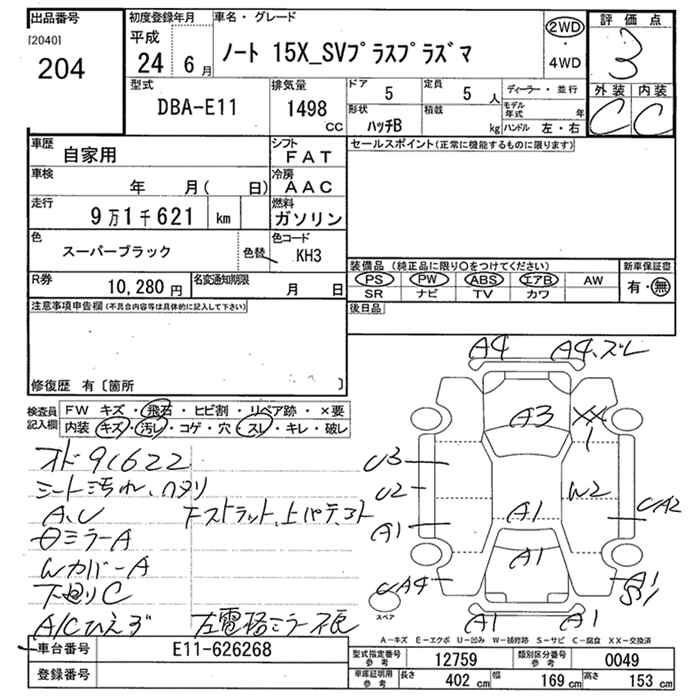 出品番号
[2040]
204
初度登録年月
平成
24 6月
車名・グレード
ノート 15X_SVプラスプラズマ
2WD
・
4WD
評価点
3
外装 内装
C C
型式
DBA-E11
排気量
1498
CC
ドア
5
定員
5 人
形状
ハッチB
積載
kg
ディーラー・並行
モデル年式 年
ハンドル 左・右
車歴
自家用
シフト
FAT
車検
年 月( 日)
冷房
AAC
走行
9万1千621 km
燃料
ガソリン
色
スーパーブラック
色替
色コード
KH3
R券
10,280 円
名変通知期限
月 日
セールスポイント(正常に機能するものに限ります)
装備品 (純正品に限り○をつけてください)
PS PW ABS エアB AW
SR ナビ TV カワ
新車保証書
有・無
後日品
注意事項申告欄(不具合内容等は具体的に記入して下さい)
修復歴 有〔箇所 〕
検査員記入欄
FW キズ・飛石・ヒビ割・リペア跡・×要
内装 キズ・汚レ・コゲ・穴・スレ・キレ・破レ
オド91622
シート汚れ、ヘタリ
A、U
Fストラット、上バテ、コト
日ミラーA
WカバーA
下廻りC
A/Cひえず
左電格ミラー不良
A4
A4、ズレ
A3
XX
1
U3
U2
A1
W2
UA2
A1
A1
UA4
A1
S1
A1
A1
スペア
A－キズ E－エクボ U－凹み W－補修跡 S－サビ C－腐食 XX－交換済
車台番号
E11-626268
登録番号
型式指定番号
参考
12759
類別区分番号
参考
0049
車庫証明用
参考
長さ
402 cm
幅
169 cm
高さ
153 cm